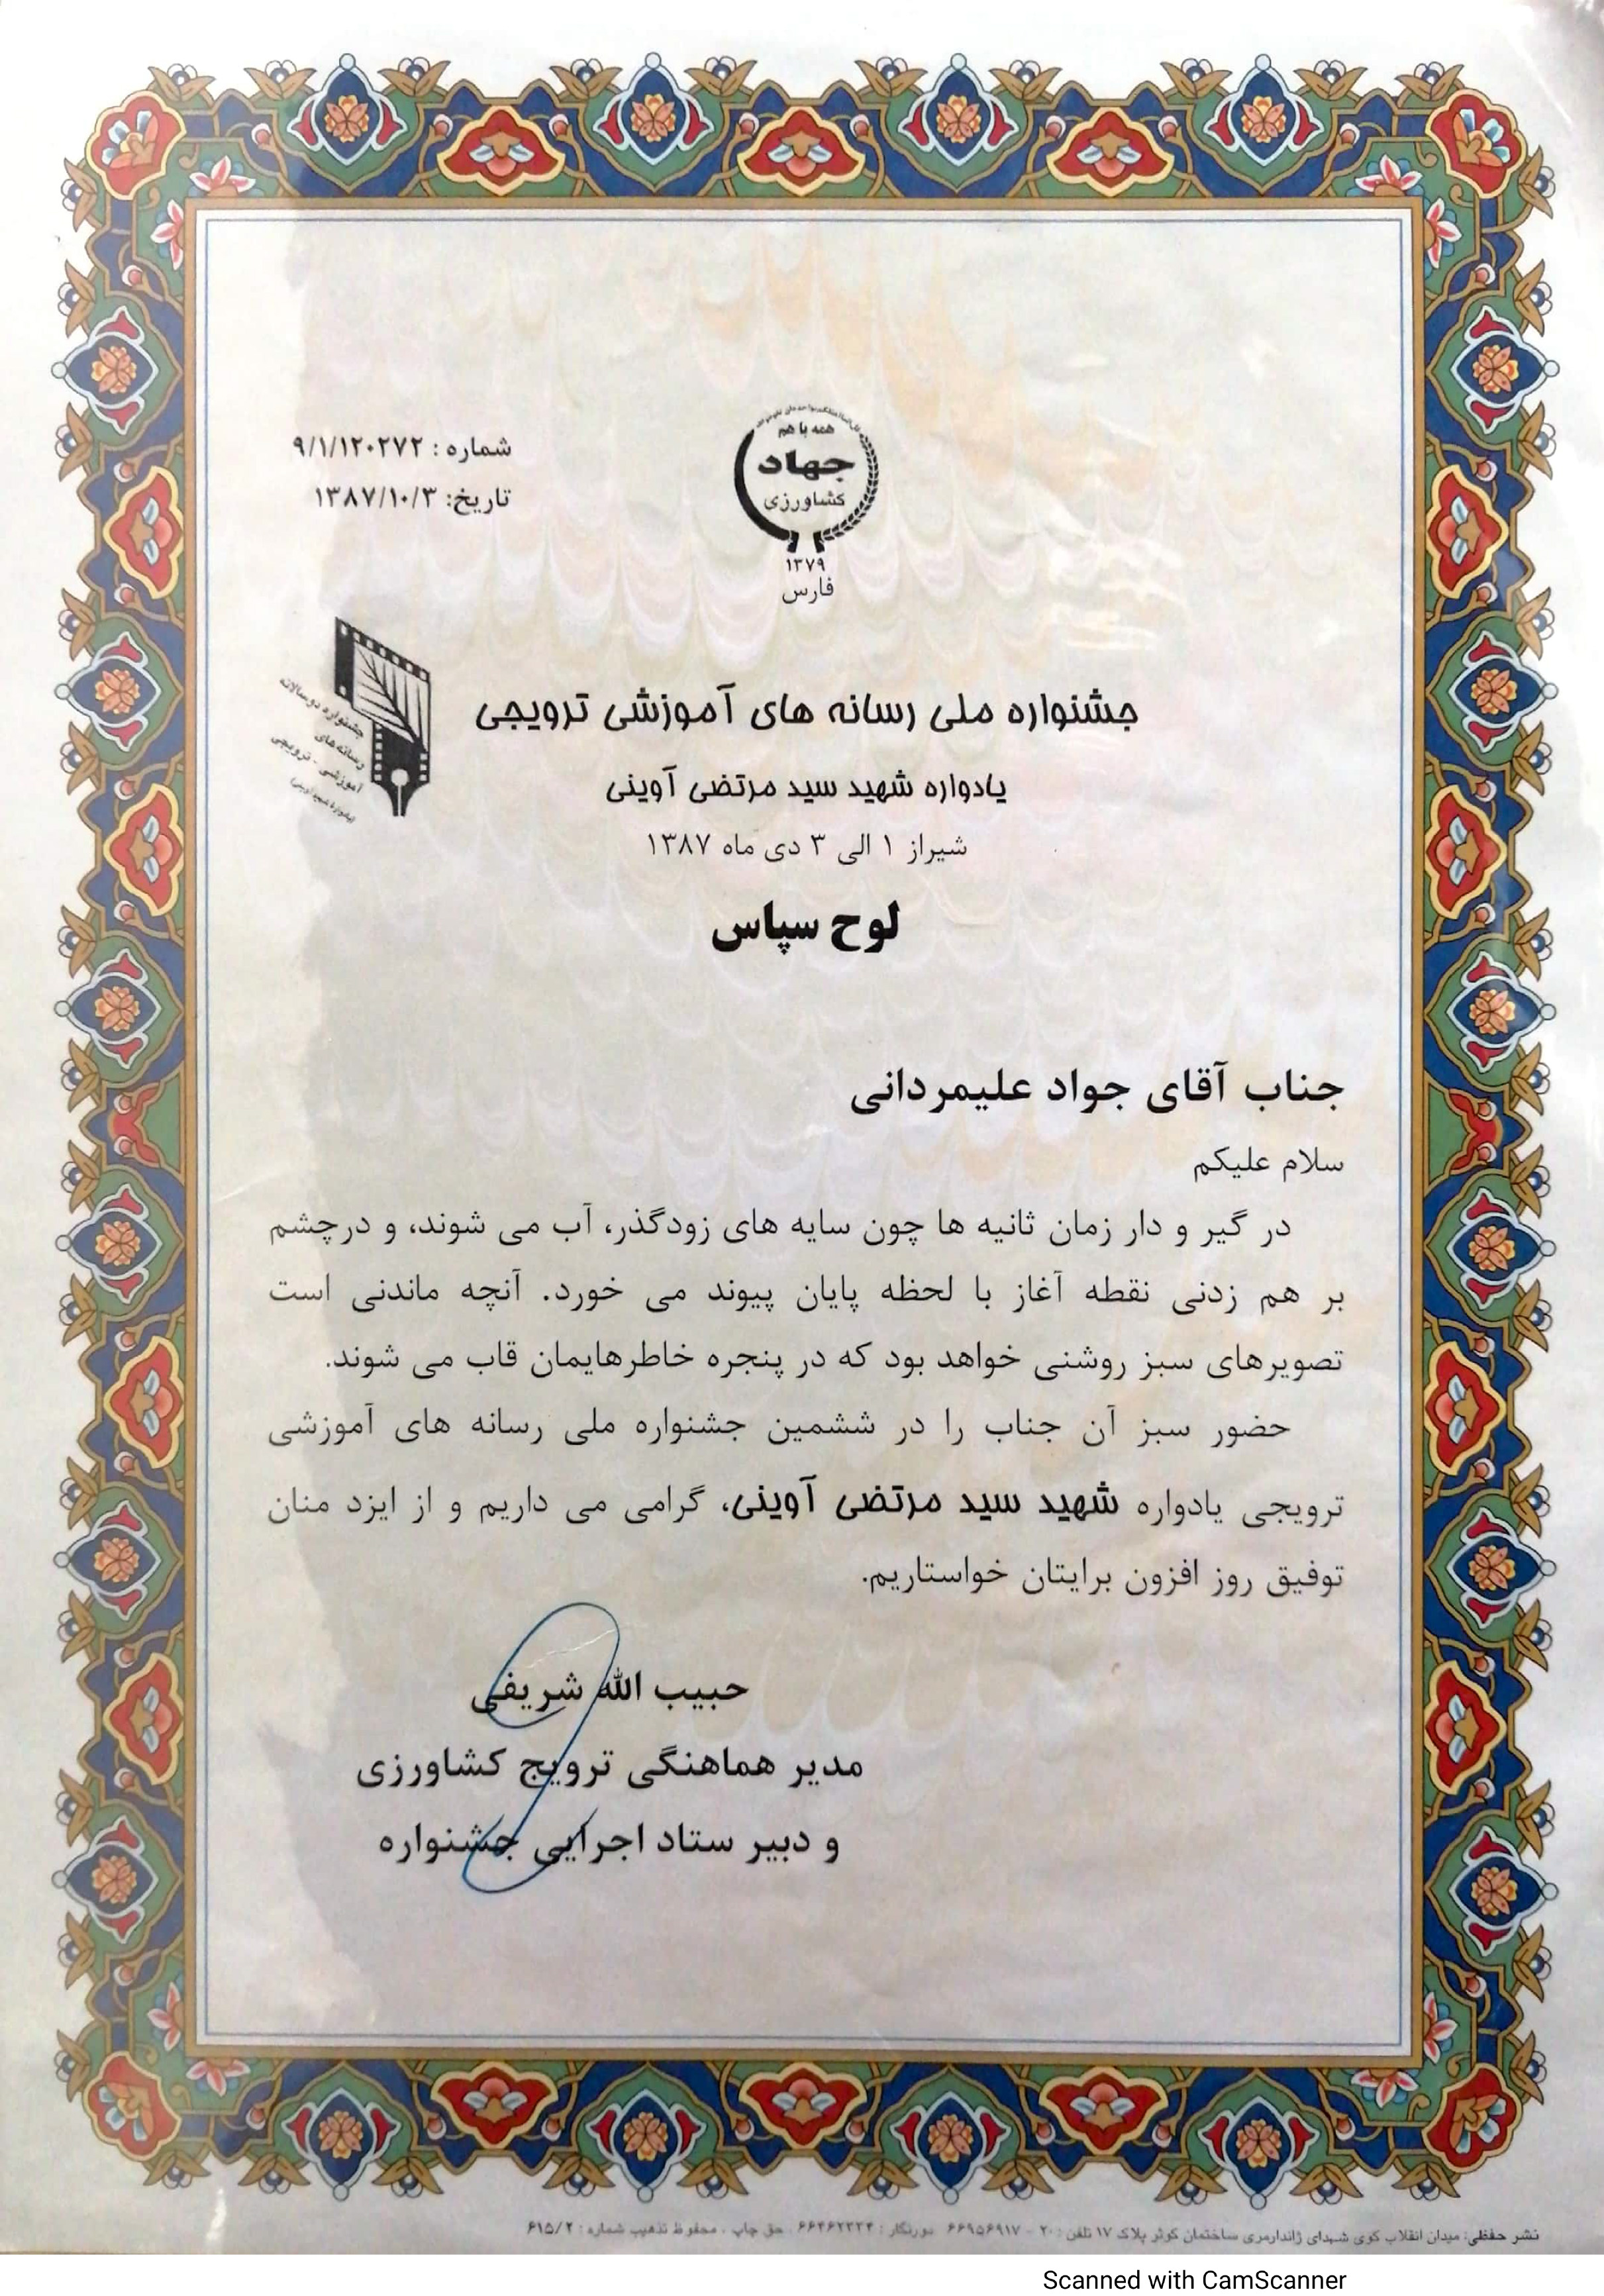 همه با هم
جهاد
کشاورزی
۱۳۷۹
فارس
شماره : ۹/۱/۱۲۰۲۷۲
تاریخ: ۱۳۸۷/۱۰/۳
جشنواره دوسالانه
رسانه های
آموزشی - ترویجی
جشنواره ملی رسانه های آموزشی ترویجی
یادواره شهید سید مرتضی آوینی
شیراز ۱ الی ۳ دی ماه ۱۳۸۷
لوح سپاس
جناب آقای جواد علیمردانی
سلام علیکم
در گیر و دار زمان ثانیه ها چون سایه های زودگذر، آب می شوند، و درچشم
بر هم زدنی نقطه آغاز با لحظه پایان پیوند می خورد. آنچه ماندنی است
تصویرهای سبز روشنی خواهد بود که در پنجره خاطرهایمان قاب می شوند.
حضور سبز آن جناب را در ششمین جشنواره ملی رسانه های آموزشی
ترویجی یادواره شهید سید مرتضی آوینی، گرامی می داریم و از ایزد منان
توفیق روز افزون برایتان خواستاریم.
حبیب الله شریفی
مدیر هماهنگی ترویج کشاورزی
و دبیر ستاد اجرایی جشنواره
نشر حفظی: میدان انقلاب کوی شهدای ژاندارمری ساختمان کوثر پلاک ۱۷ تلفن : ۲۰ - ۶۶۹۵۶۹۱۷ دورنگار : ۶۶۴۶۲۳۳۴ حق چاپ ، محفوظ تذهیب شماره : ۶۱۵/۲
Scanned with CamScanner